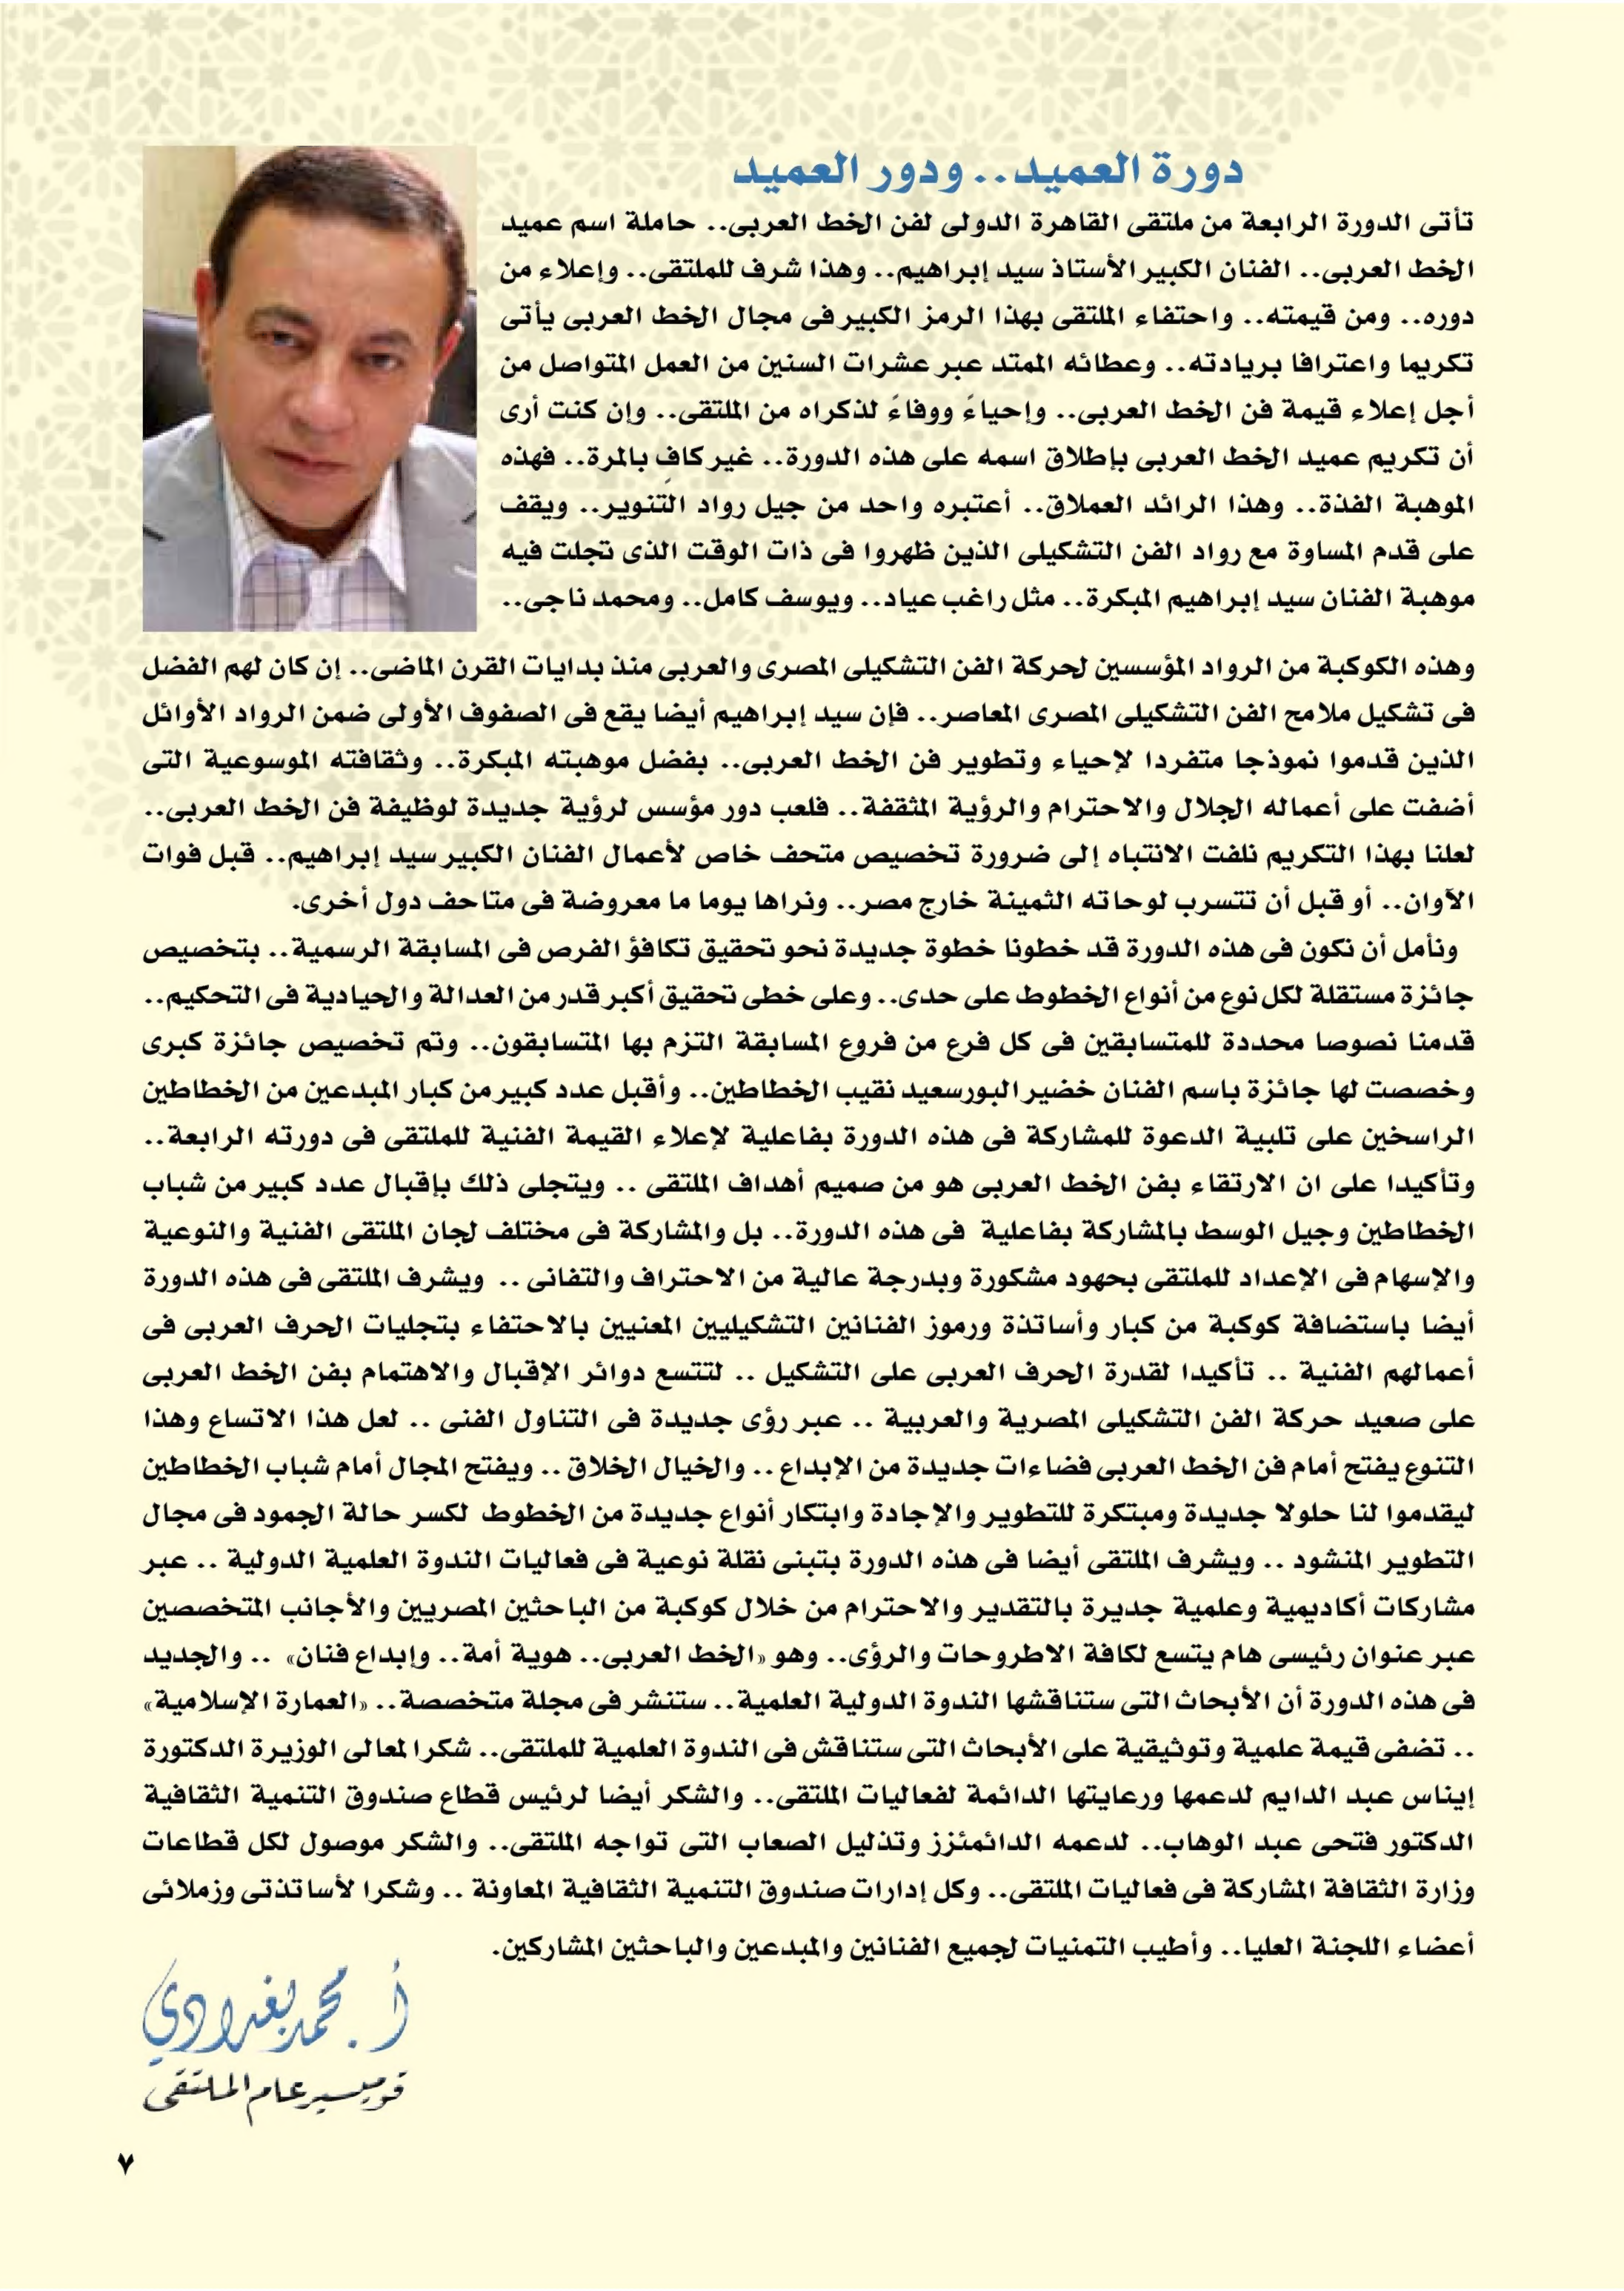 دورة العميد.. ودور العميد
تأتى الدورة الرابعة من ملتقى القاهرة الدولى لفن الخط العربى.. حاملة اسم عميد
الخط العربى.. الفنان الكبير الأستاذ سيد إبراهيم.. وهذا شرف للملتقى.. وإعلاء من
دوره.. ومن قيمته.. واحتفاء الملتقى بهذا الرمز الكبير فى مجال الخط العربى يأتى
تكريما واعترافا بريادته.. وعطائه الممتد عبر عشرات السنين من العمل المتواصل من
أجل إعلاء قيمة فن الخط العربى.. وإحياءً ووفاءً لذكراه من الملتقى.. وإن كنت أرى
أن تكريم عميد الخط العربى بإطلاق اسمه على هذه الدورة.. غير كافٍ بالمرة.. فهذه
الموهبة الفذة.. وهذا الرائد العملاق.. أعتبره واحد من جيل رواد التنوير.. ويقف
على قدم المساوة مع رواد الفن التشكيلى الذين ظهروا فى ذات الوقت الذى تجلت فيه
موهبة الفنان سيد إبراهيم المبكرة.. مثل راغب عياد.. ويوسف كامل.. ومحمد ناجى..
وهذه الكوكبة من الرواد المؤسسين لحركة الفن التشكيلى المصرى والعربى منذ بدايات القرن الماضى.. إن كان لهم الفضل
فى تشكيل ملامح الفن التشكيلى المصرى المعاصر.. فإن سيد إبراهيم أيضا يقع فى الصفوف الأولى ضمن الرواد الأوائل
الذين قدموا نموذجا متفردا لإحياء وتطوير فن الخط العربى.. بفضل موهبته المبكرة.. وثقافته الموسوعية التى
أضفت على أعماله الجلال والاحترام والرؤية المثقفة.. فلعب دور مؤسس لرؤية جديدة لوظيفة فن الخط العربى..
لعلنا بهذا التكريم نلفت الانتباه إلى ضرورة تخصيص متحف خاص لأعمال الفنان الكبير سيد إبراهيم.. قبل فوات
الآوان.. أو قبل أن تتسرب لوحاته الثمينة خارج مصر.. ونراها يوما ما معروضة فى متاحف دول أخرى.
ونأمل أن نكون فى هذه الدورة قد خطونا خطوة جديدة نحو تحقيق تكافؤ الفرص فى المسابقة الرسمية.. بتخصيص
جائزة مستقلة لكل نوع من أنواع الخطوط على حدى.. وعلى خطى تحقيق أكبر قدر من العدالة والحيادية فى التحكيم..
قدمنا نصوصا محددة للمتسابقين فى كل فرع من فروع المسابقة التزم بها المتسابقون.. وتم تخصيص جائزة كبرى
وخصصت لها جائزة باسم الفنان خضير البورسعيد نقيب الخطاطين.. وأقبل عدد كبير من كبار المبدعين من الخطاطين
الراسخين على تلبية الدعوة للمشاركة فى هذه الدورة بفاعلية لإعلاء القيمة الفنية للملتقى فى دورته الرابعة..
وتأكيدا على ان الارتقاء بفن الخط العربى هو من صميم أهداف الملتقى .. ويتجلى ذلك بإقبال عدد كبير من شباب
الخطاطين وجيل الوسط بالمشاركة بفاعلية فى هذه الدورة.. بل والمشاركة فى مختلف لجان الملتقى الفنية والنوعية
والإسهام فى الإعداد للملتقى بحهود مشكورة وبدرجة عالية من الاحتراف والتفانى .. ويشرف الملتقى فى هذه الدورة
أيضا باستضافة كوكبة من كبار وأساتذة ورموز الفنانين التشكيليين المعنيين بالاحتفاء بتجليات الحرف العربى فى
أعمالهم الفنية .. تأكيدا لقدرة الحرف العربى على التشكيل .. لتتسع دوائر الإقبال والاهتمام بفن الخط العربى
على صعيد حركة الفن التشكيلى المصرية والعربية .. عبر رؤى جديدة فى التناول الفنى .. لعل هذا الاتساع وهذا
التنوع يفتح أمام فن الخط العربى فضاءات جديدة من الإبداع .. والخيال الخلاق .. ويفتح المجال أمام شباب الخطاطين
ليقدموا لنا حلولا جديدة ومبتكرة للتطوير والإجادة وابتكار أنواع جديدة من الخطوط لكسر حالة الجمود فى مجال
التطوير المنشود .. ويشرف الملتقى أيضا فى هذه الدورة بتبنى نقلة نوعية فى فعاليات الندوة العلمية الدولية .. عبر
مشاركات أكاديمية وعلمية جديرة بالتقدير والاحترام من خلال كوكبة من الباحثين المصريين والأجانب المتخصصين
عبر عنوان رئيسى هام يتسع لكافة الاطروحات والرؤى.. وهو «الخط العربى.. هوية أمة.. وإبداع فنان» .. والجديد
فى هذه الدورة أن الأبحاث التى ستناقشها الندوة الدولية العلمية.. ستنشر فى مجلة متخصصة.. «العمارة الإسلامية»
.. تضفى قيمة علمية وتوثيقية على الأبحاث التى ستناقش فى الندوة العلمية للملتقى.. شكرا لمعالى الوزيرة الدكتورة
إيناس عبد الدايم لدعمها ورعايتها الدائمة لفعاليات الملتقى.. والشكر أيضا لرئيس قطاع صندوق التنمية الثقافية
الدكتور فتحى عبد الوهاب.. لدعمه الدائمئزز وتذليل الصعاب التى تواجه الملتقى.. والشكر موصول لكل قطاعات
وزارة الثقافة المشاركة فى فعاليات الملتقى.. وكل إدارات صندوق التنمية الثقافية المعاونة .. وشكرا لأساتذتى وزملائى
أعضاء اللجنة العليا.. وأطيب التمنيات لجميع الفنانين والمبدعين والباحثين المشاركين.
أ. محمد بغدادي
قوميسير عام الملتقى
٧